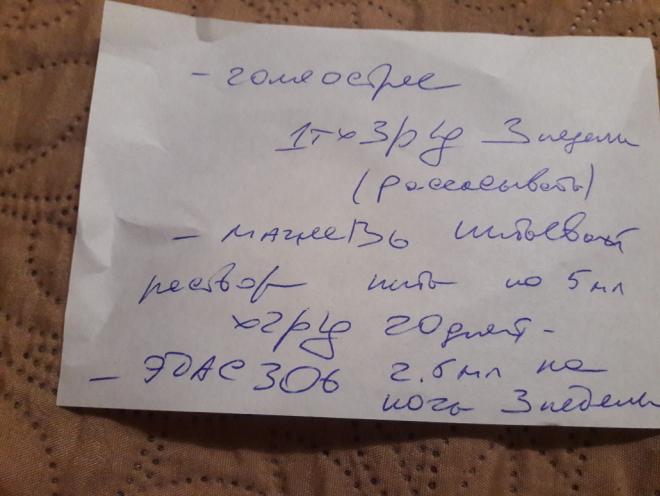 - гомеострес
1т х 3р/д 3 недели
(рассасывать)
- магне В6 питьевой
раствор пить по 5 мл
х2р/д 20 дней -
- ЭДАС 306 2.5 мл на
ночь 3 недели